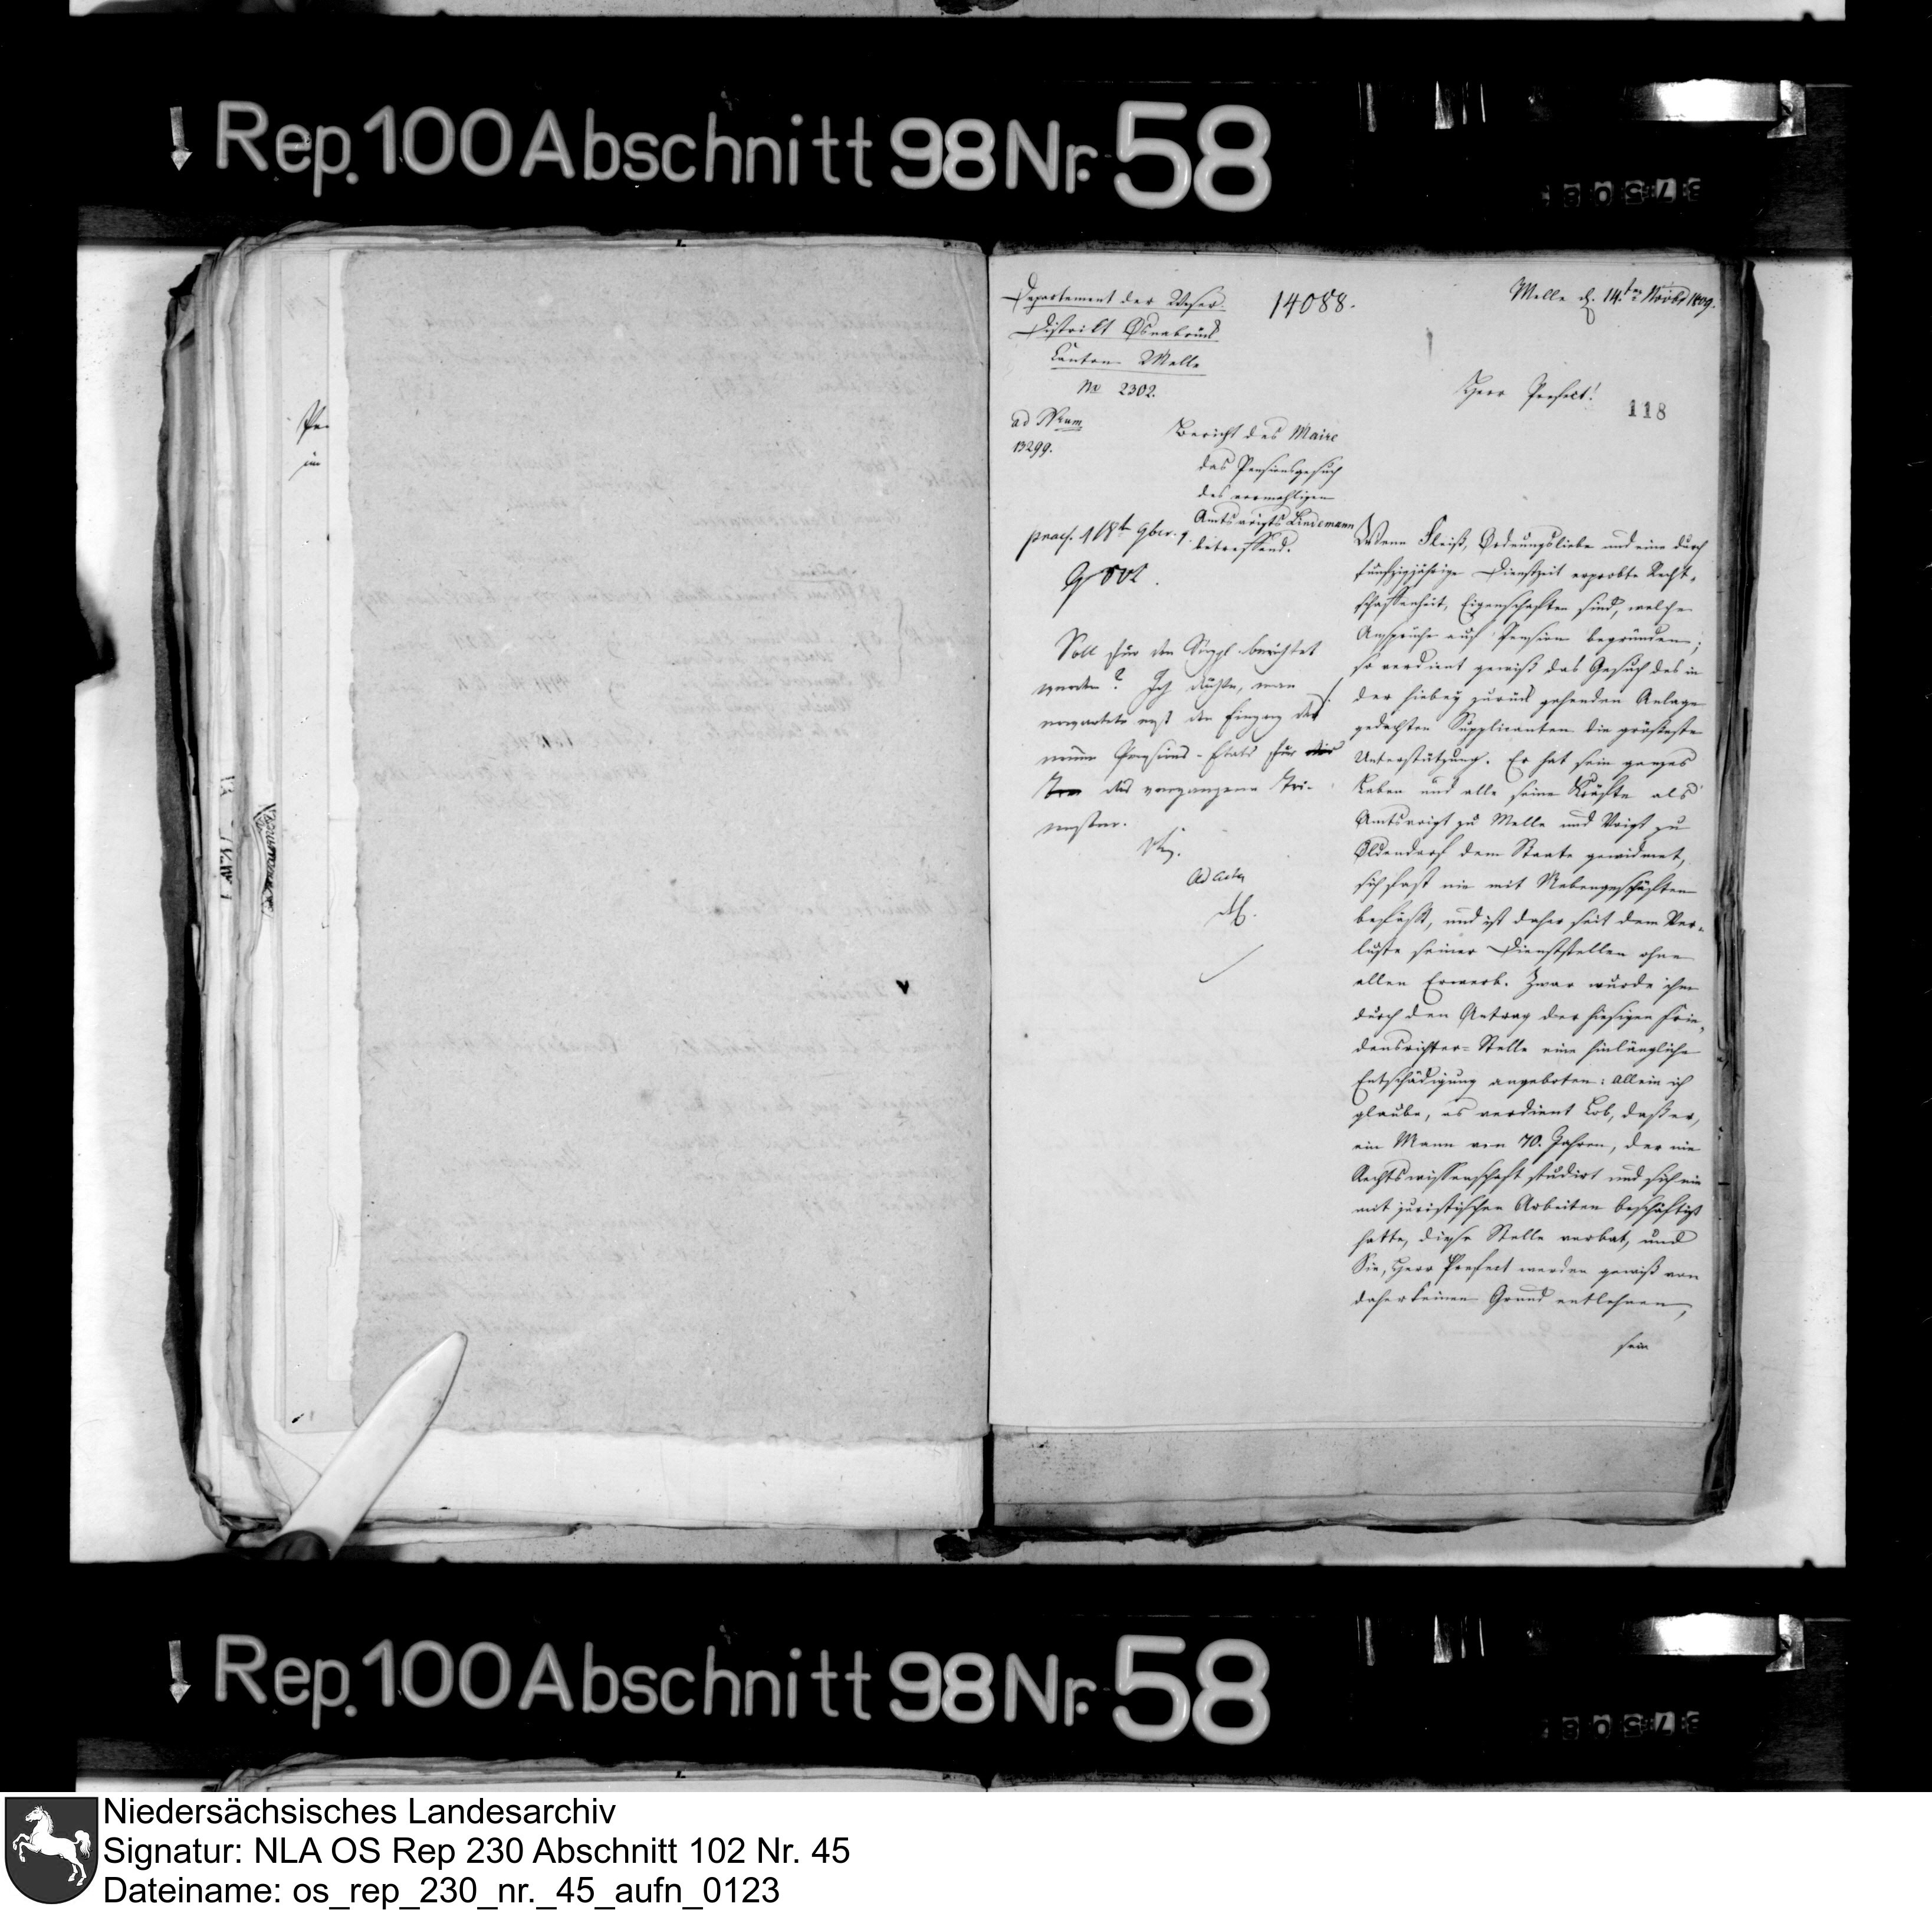 Rep. 100 Abschnitt 98 Nr. 58
Departement der Weser.
Distrikt Osnabrück
Canton Melle
No 2302.
14088.
Melle d. 14ten Novbr 1809.
Herr Prefect!
118
ad Num
13299.
Bericht des Maire
das Pensionsgesuch
des vormahligen
Amtsvoigts Lindemann
betreffend.
praes. 18t 9ber. 9.
Soll für den Suppl. berichtet
werden? Ich dächte, man
erwartete erst den Eingang des
neuen Pensions-Etats für
des vergangenen Tri-
mesters.
ad acta
Wenn Fleiß, Ordnungsliebe und eine durch
funfzigjährige Dienstzeit erprobte Recht-
schaffenheit, Eigenschaften sind, welche
Ansprüche auf Pension begründen;
so verdient gewiß das Gesuch des in
der hiebey zurück gehenden Anlage
gedachten Supplicanten die größeste
Unterstützung. Er hat sein ganzes
Leben und alle seine Kräfte als
Amtsvoigt zu Melle und Voigt zu
Oldendorf dem Staate gewidmet,
sich fast nie mit Nebengeschäften
befaßt, und ist daher seit dem Ver-
luste seiner Dienststellen ohne
allen Erwerb. Zwar wurde ihm
durch den Antrag der hiesigen Frie-
densrichter-Stelle eine hinlängliche
Entschädigung angeboten: Allein ich
glaube, es verdient Lob, daß er,
ein Mann von 70. Jahren, der nie
Rechtswissenschaft studirt und sich nie
mit juristischen Arbeiten beschäftigt
hatte, diese Stelle verbat, und
Sie, Herr Prefect werden gewiß von
daher keinen Grund entlehnen,
sein
Rep. 100 Abschnitt 98 Nr. 58
Niedersächsisches Landesarchiv
Signatur: NLA OS Rep 230 Abschnitt 102 Nr. 45
Dateiname: os_rep_230_nr._45_aufn_0123